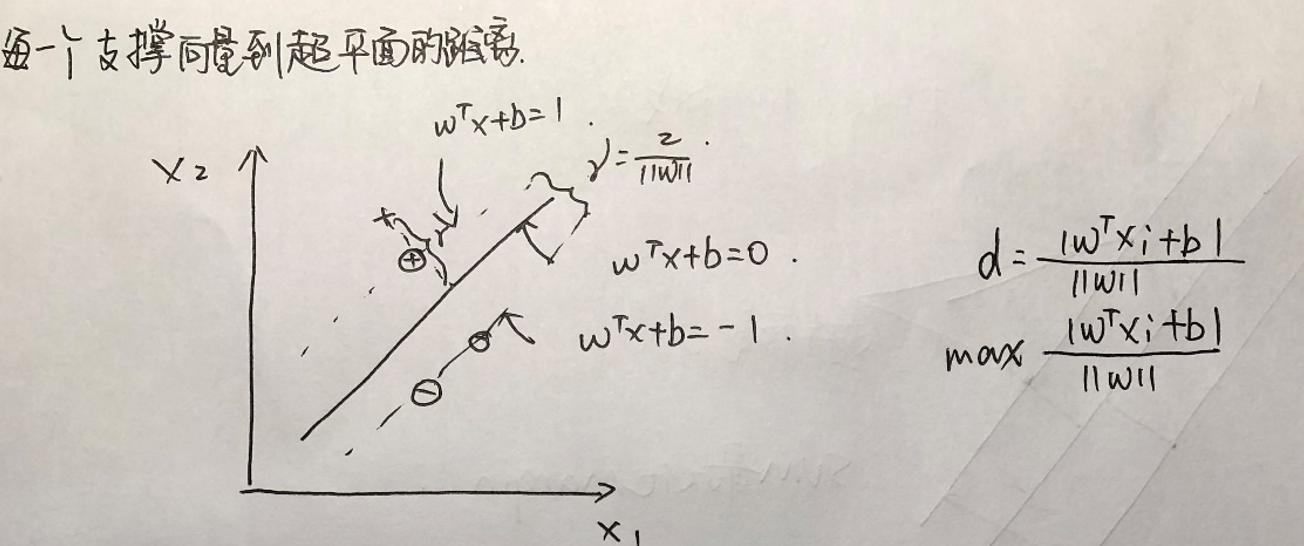 每一个支撑向量到超平面的距离.
wᵀx+b=1.
γ=2/||w||.
x₂
wᵀx+b=0.
d=|wᵀxᵢ+b|/||w||
wᵀx+b=-1.
max |wᵀxᵢ+b|/||w||
x₁